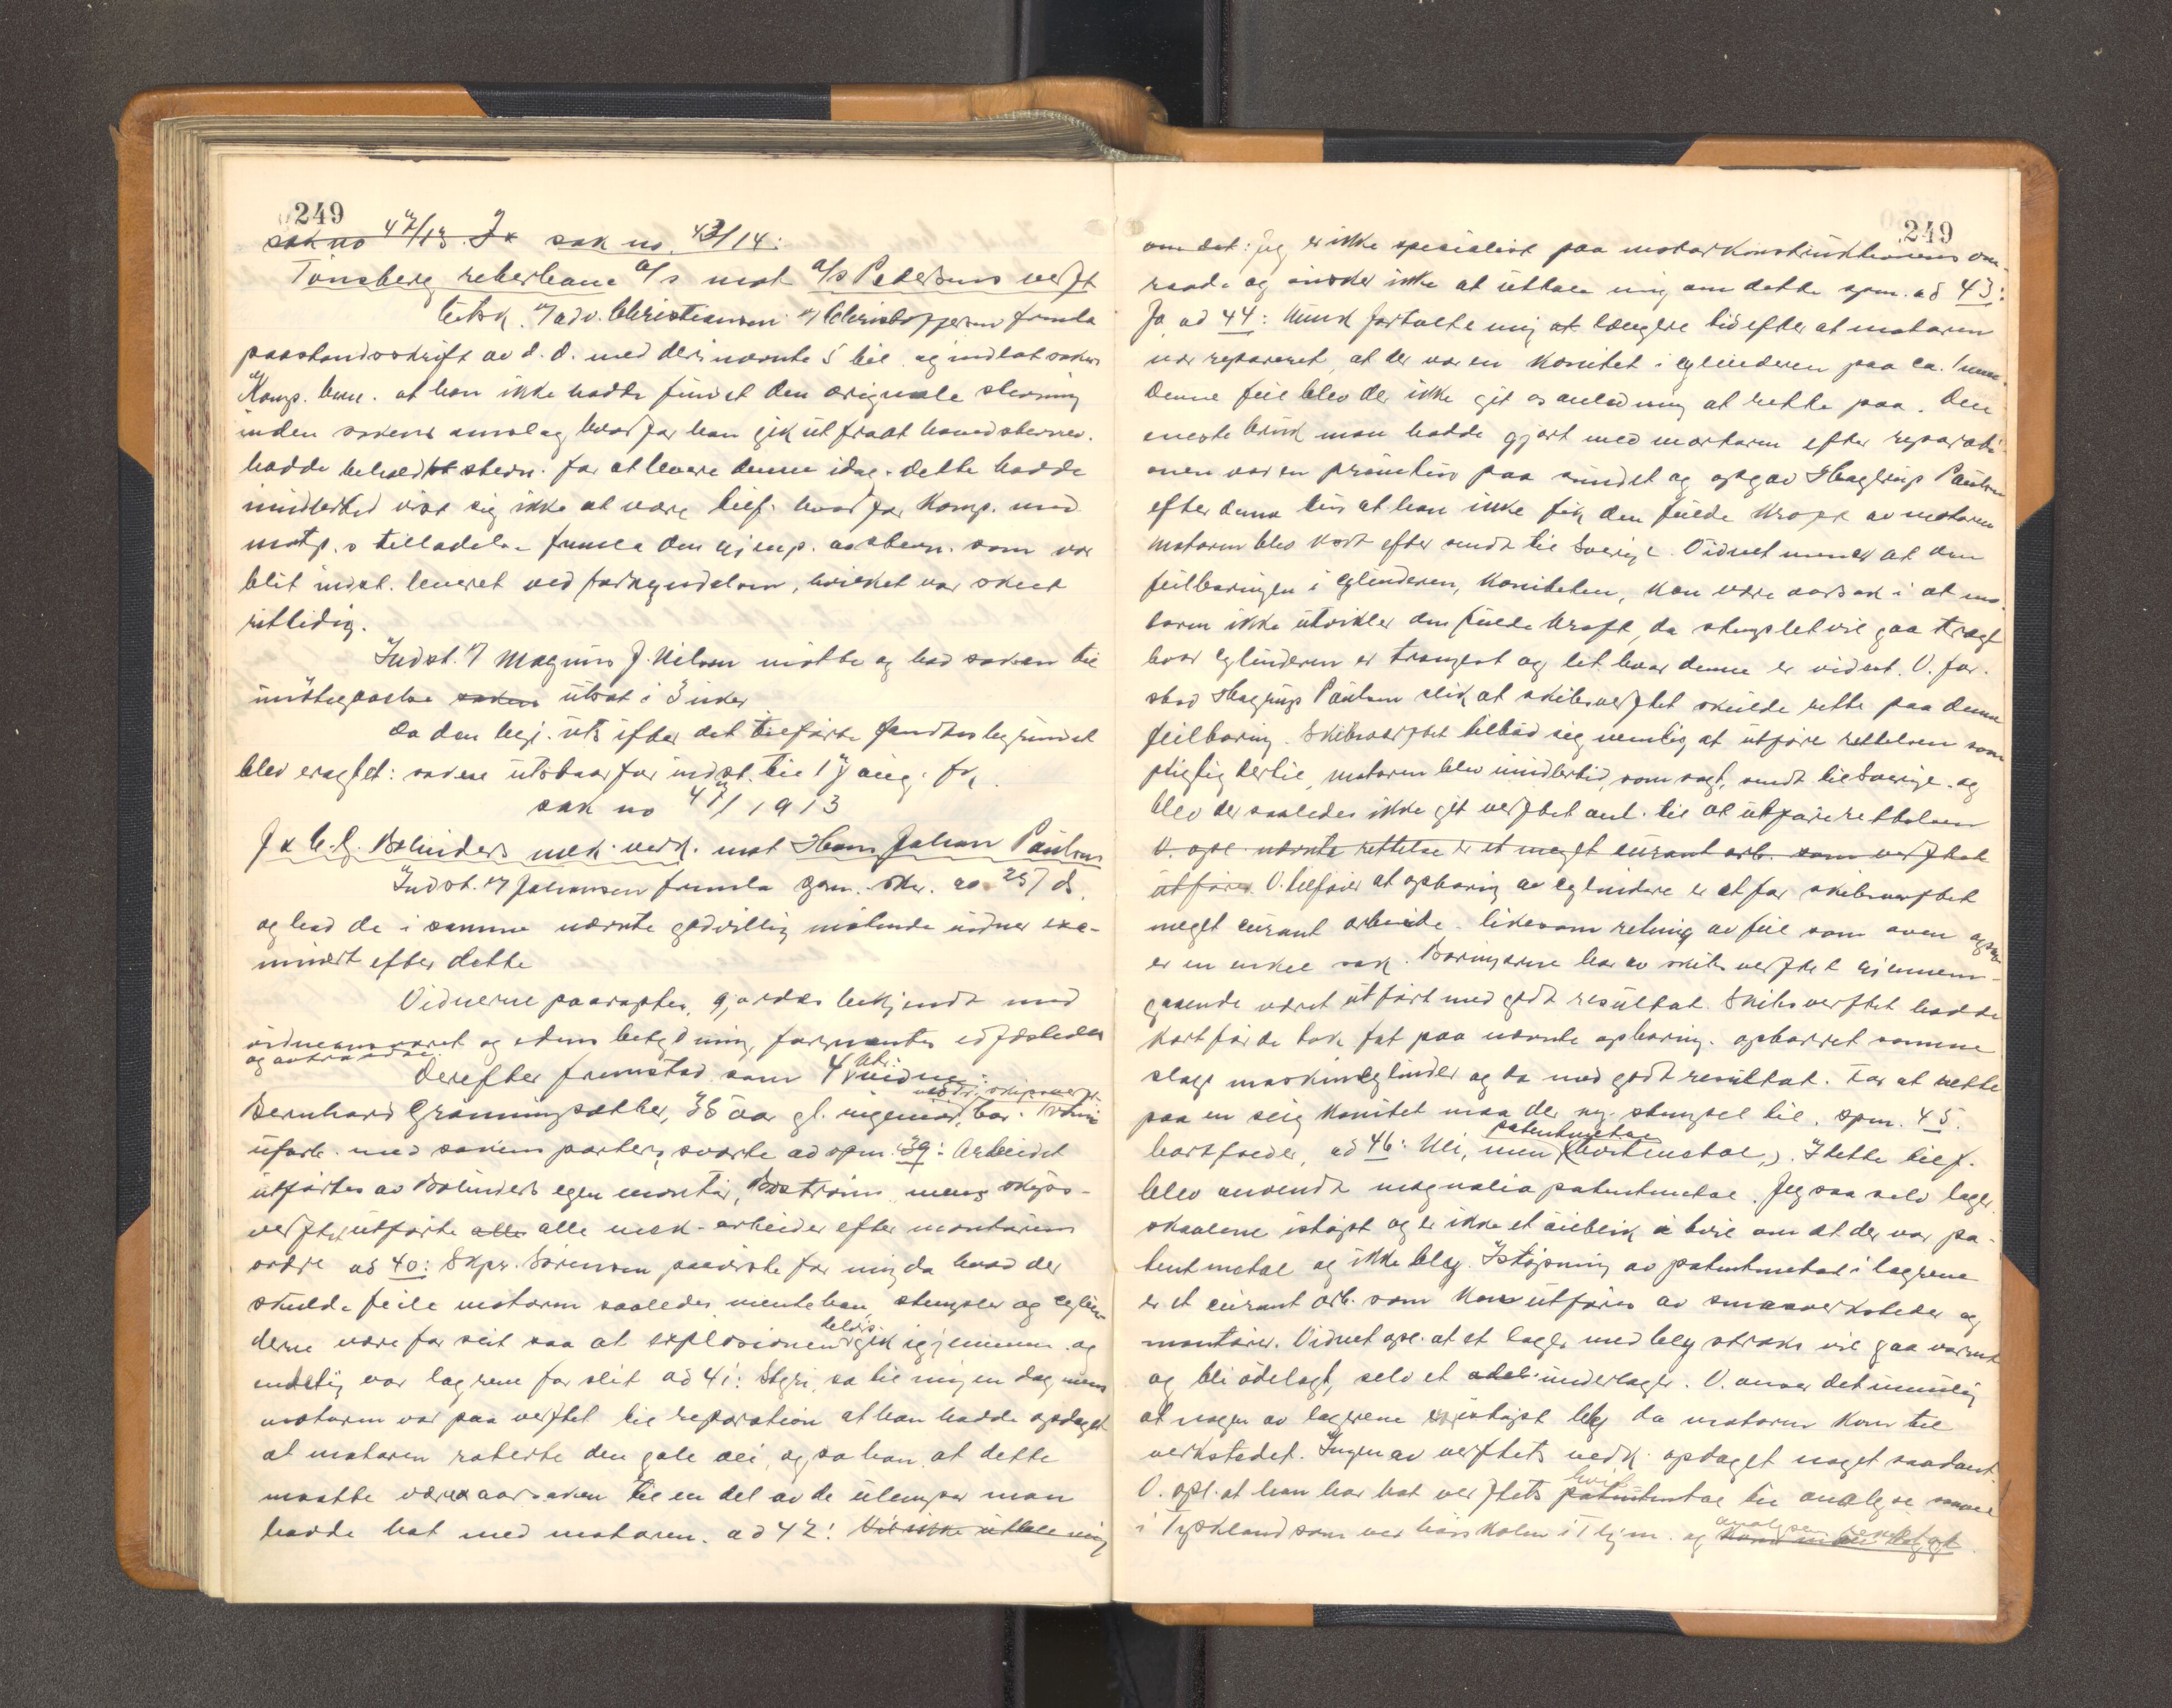 249
sak no 47/13. J & sak no. 43/14:
Tönsberg reberbane A/s mot A/s Pedersens verft
Citsk. v/ adv. Christiansen v/ Christoffersen fremla
paastandsskrift av d. d. med deri nævnte 5 bil. og indlot saken
Komp. bem. at han ikke hadde fundet den originale stevning
inden sakens anlæg hvorfor han gik ut fra at hovedstevnev.
hadde beholdt stevn. for at levere denne idag. Dette hadde
imidlertid vist sig ikke at være tilf. hvorfor komp. med
motp.s tilladelse fremla den gjenp. av stevn. som var
blit indst. leveret ved forkyndelsen, hvilket var skeet
rettidig.
Indst. v/ Magnus J. Nilsen mötte og bad saken til
imötegaaelse saken utsat i 3 uker
Da den begj. uts. efter det tilförte fandtes begrundet
blev eragtet: saken utstaar for indst. til 17 aug. fr.
sak no 47/1913
J & C. G. Bolinders mek. verk. mot Hans Johan Paulsen
Indst. v/ Johansen fremla spm. skr. av 25/7 ds.
og bad de i samme nævnte godvillig mötende vidner exa-
minert efter dette
Vidnerne paaroptes, gjordes bekjendt med
vidneansvaret og edens betydning, formantes edfæstedes
og avtraadte.
Derefter fremstod som 4 vidne:
Bernhard Grönningsæther, 38 aar gl. ingeniör, bor. Tromsö
uforb. med sakens parter, svarte ad spm. 39: Arbeidet
utförtes av Bolinders egen montör, Boström mens skibs-
verftet utförte alle alle mek. arbeider efter montörens
ordre ad 40: Skpr. Sörensen paaviste for mig da hvad der
skulde feile motoren saaledes mente han, stempler og cylin-
derne være for slit saa at explosionen delvis gik igjennem og
endelig var lagrene for slit ad 41: Stgr. sa til mig en dag mens
motoren var paa verftet til reparation at han hadde opdaget
at motoren roterte den gale vei, og sa han at dette
maatte være aarsaken til en del av de ulemper man
hadde hat med motoren. ad 42: Vil ikke uttale mig
249
om det: Jeg er ikke spesialist paa motorkonstruktionens om-
raade og önsker ikke at uttale mig om dette spm. ad 43:
Ja ad 44: Munk fortalte mig at længere tid efter at motoren
var repareret, at der var en konitet i cylinderen paa ca. 1 mm.
Denne feil blev der ikke git os anledning at rette paa. Den
eneste bruk man hadde gjort med motoren efter reparati-
onen var en prövetur paa sundet og opgav Hagerup Paulsen
efter denne tur at han ikke fik den fulde kraft av motoren
Motoren blev kort efter sendt til Sverige. Vidnet mener at den
feilboringen i cylinderen, koniteten, kan være aarsak i at mo-
toren ikke utvikler den fulde kraft, da stemplet vil gaa trægt
hvor cylinderen er trangest og let hvor denne er videst. V. for-
stod Hagerup Paulsen slik at skibsverftet skulde rette paa denne
feilboring. Skibsverftet tilböd sig nemlig at utföre rettelsen som
pligtig dertil, motoren blev imidlertid, som sagt, sendt til Sverige og
blev der saaledes ikke git verftet anl. til at utföre rettelsen
V. opl. nævnte rettelse er et meget kurant arb. som verftet
utförer. V. tilföier at opboring av cylindere er et for skibsverftet
meget kurant arbeide. likesom retning av feil som oven opgit
er en enkel sak. Boringerne har av skibsverftet gjennem-
gaaende været utfört med godt resultat. Skibsverftet hadde
kort för de tok fat paa nævnte opboring. opborret samme
slags maskincylinder og da med godt resultat. For at rette
paa en slig konitet maa der ny stempel til. Spm. 45.
bortfalder, ad 46: Nei, men patentmetal (hvitmetal). I dette tilf.
blev anvendt magnolia patentmetal. Jeg saa selv lager-
skaalene istöpt og er ikke et öieblik i tvil om at der var pa-
tentmetal og ikke bly. Istöpning av patentmetal i lagrene
er et kurant arb. som kan utföres av smaaverksteder og
montörer. Vidnet opl. at et lager med bly straks vil gaa varmt
og bli ödelagt, selv et underlager. V. anser det umulig
at nogen av lagerene er istöpt bly da motoren kom til
verkstedet. Ingen av verftets vedk. opdaget noget saadant.
V. opl. at han har hat verftets hvitmetal til analyse saavel
i Tyskland som ved höiskolen i T.hjem. og analysen